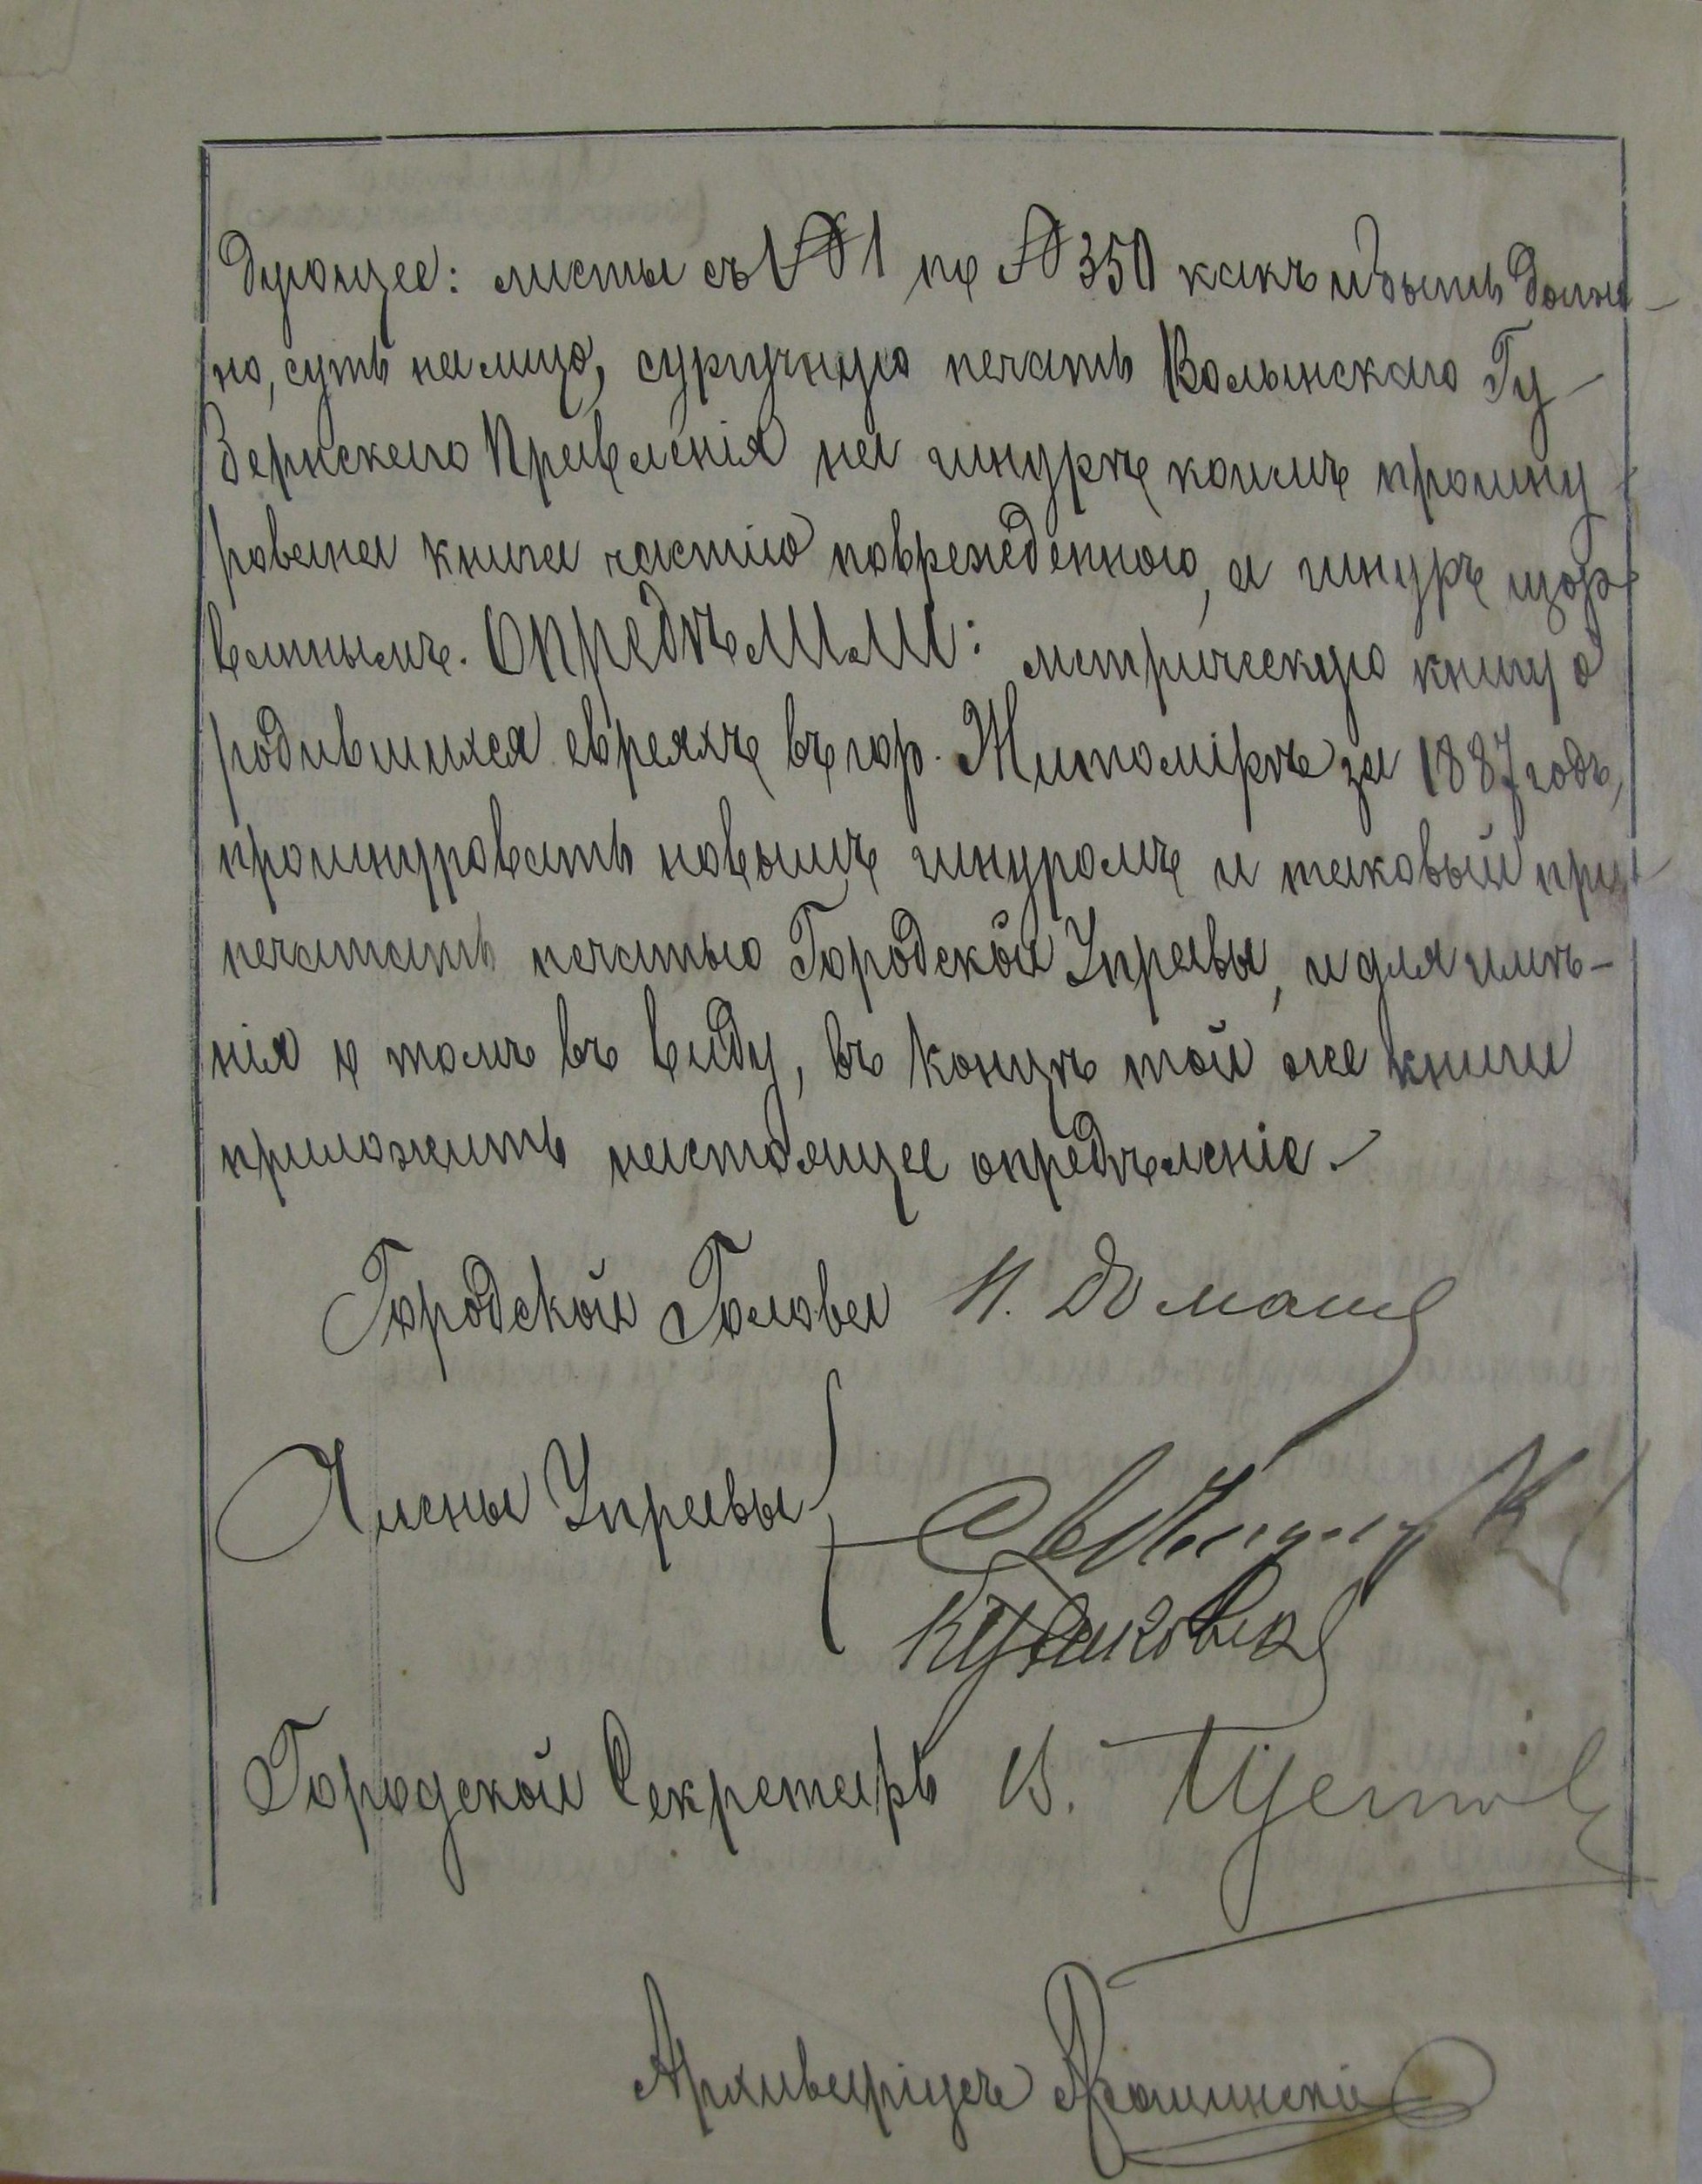 дующее: листы съ № 1 по № 350 какъ и быть долж-
но, суть на лицо, сургучную печать Волынскаго Гу-
бернскаго Правленія на шнурѣ коимъ прошну
рована книга частію поврежденною, а шнуръ изор
ваннымъ. Опредѣлили: метрическую книгу о
родившихся евреяхъ въ гор. Житомірѣ за 1887 годъ,
прошнуровать новымъ шнуромъ и таковый при
печатать печатью Городской Управы, и для имѣ-
нія о томъ въ виду, въ концѣ той же книги
приложить настоящее опредѣленіе.
Городской Голова И.
Члены Управы
Городской Секретарь
Архиваріусъ